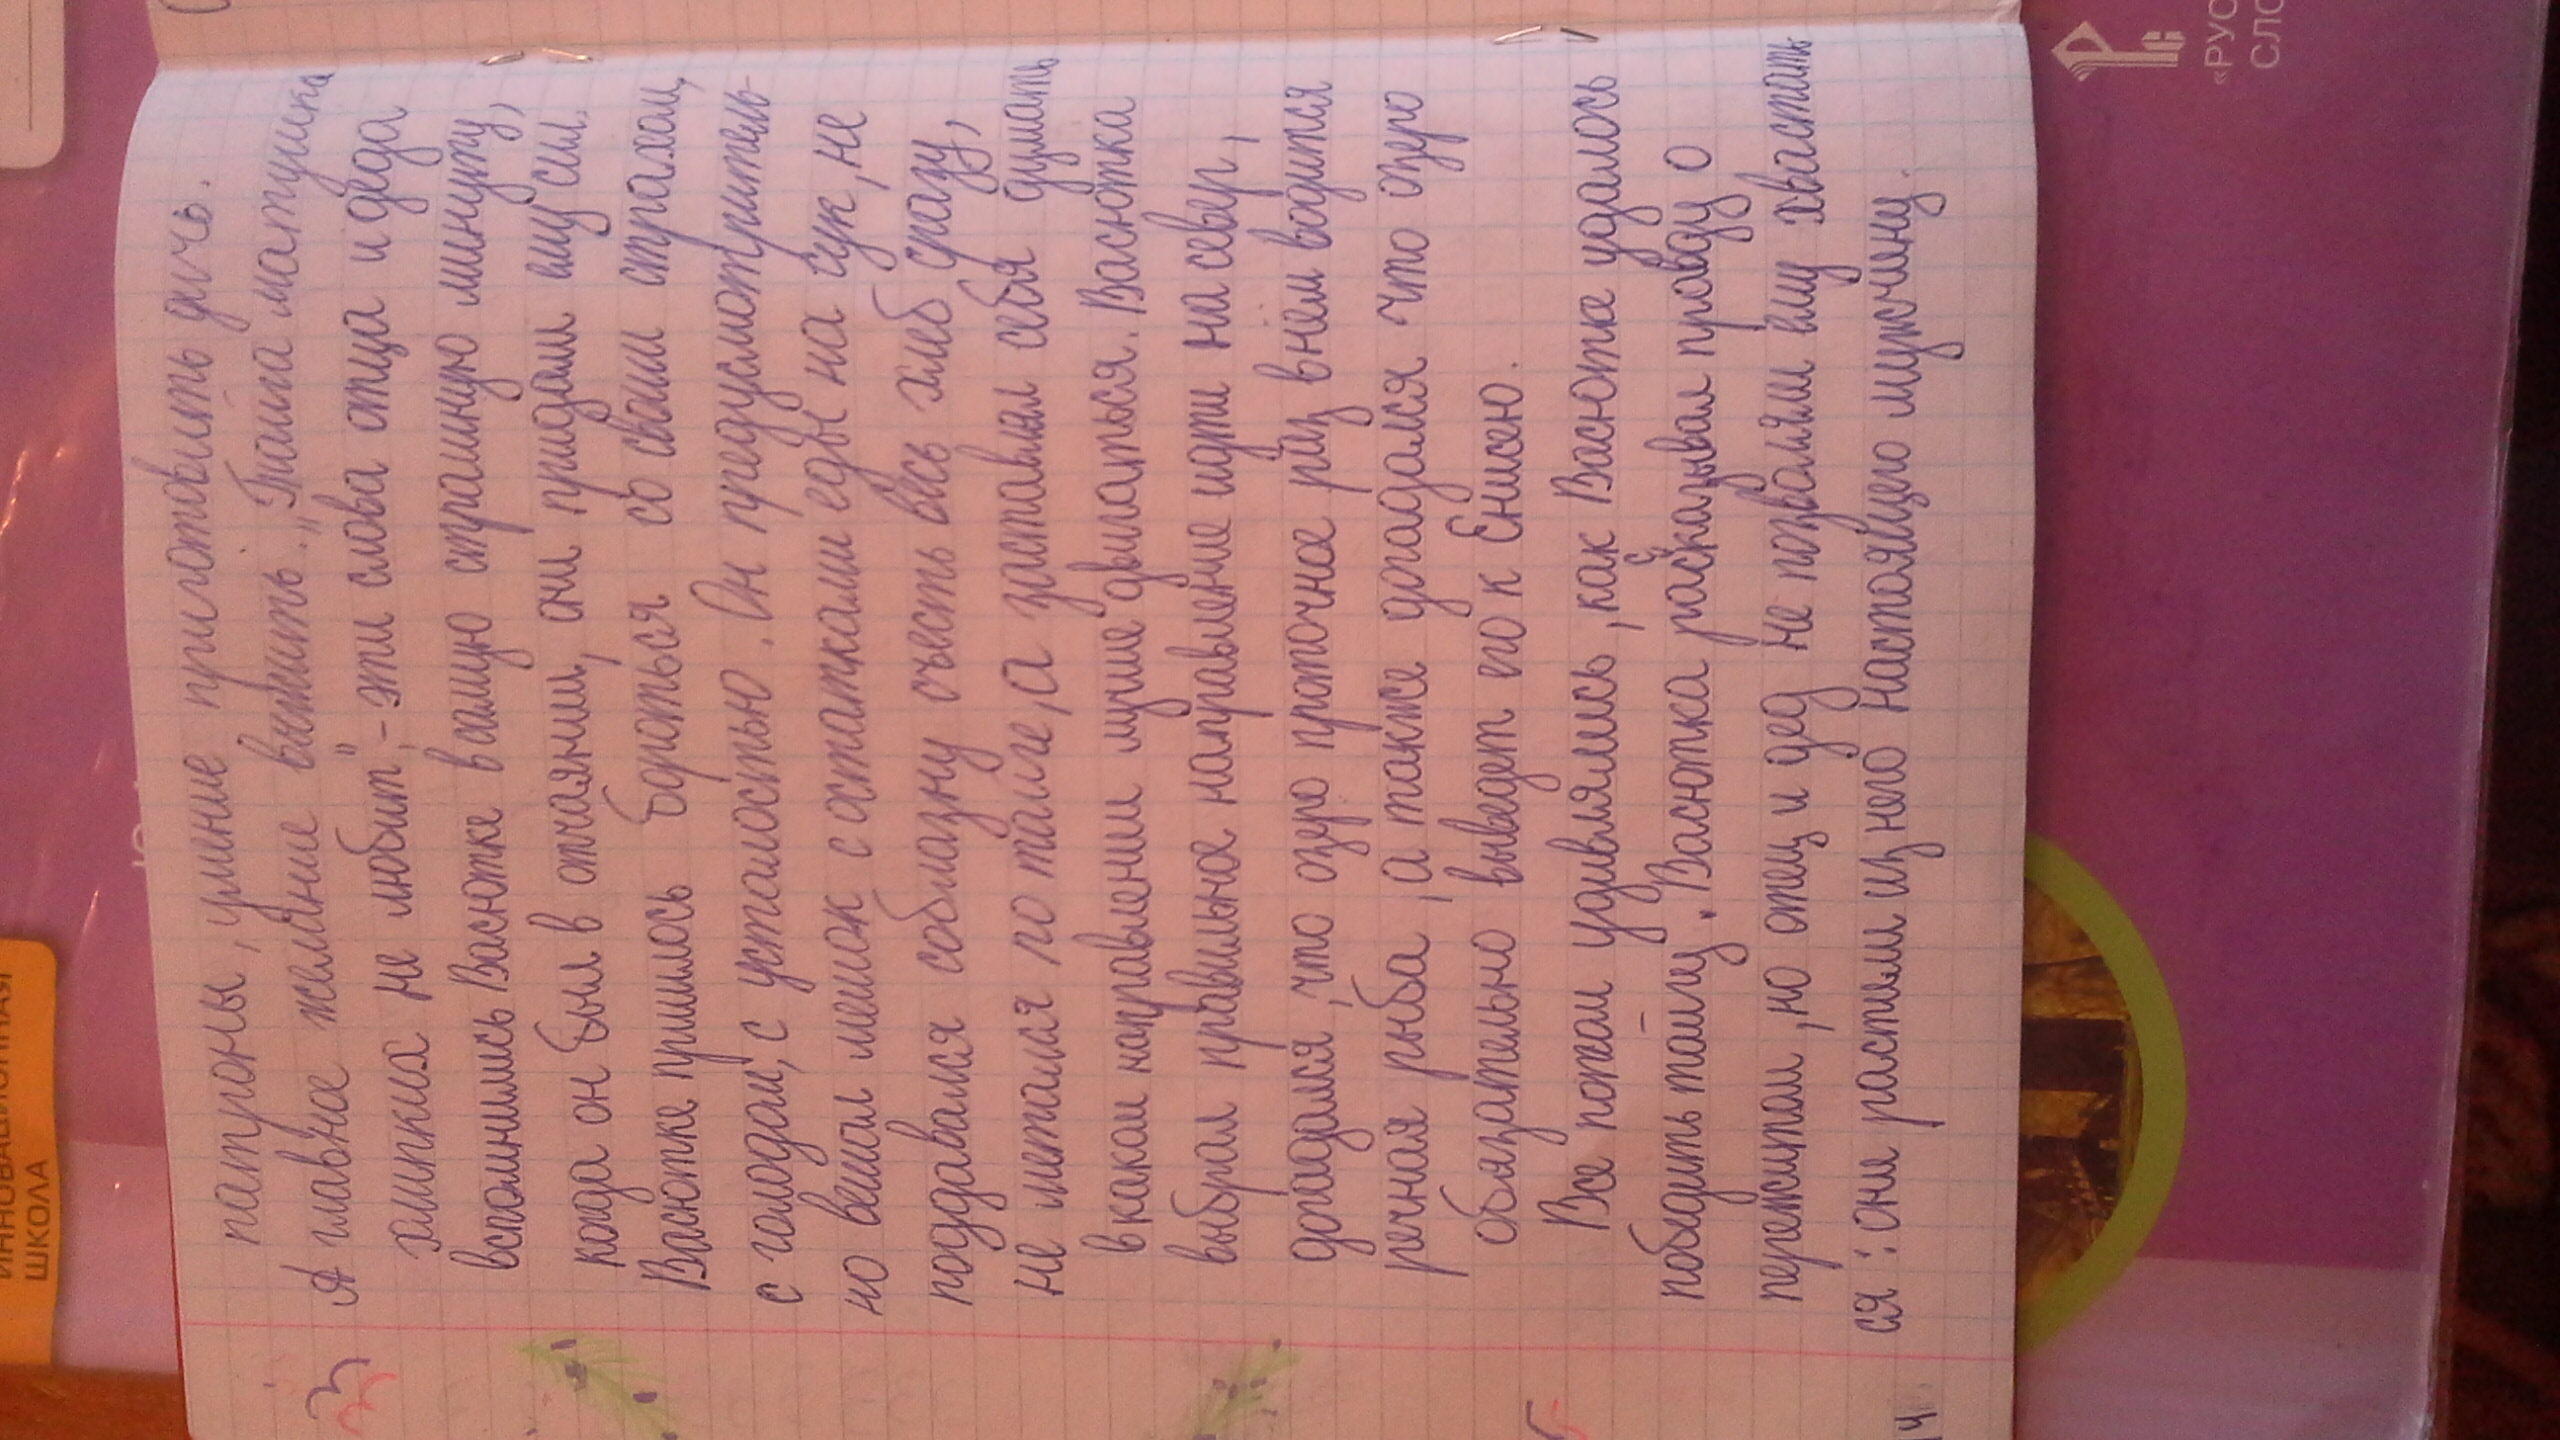 патроны, умение приготовить дичь.
А главное желание выжить. „Тайга матушка
хлипких не любит",- эти слова отца и деда
вспомнились Васютке в самую страшную минуту,
когда он был в отчаянии, они придали ему сил.
Васютке пришлось бороться со своим страхом,
с голодом, с усталостью. Он предусмотритель-
но вешал мешок с остатками еды на сук, не
поддавался соблазну съесть весь хлеб сразу,
не метался по тайге, а заставлял себя думать
в каком направлении лучше двигаться. Васютка
выбрал правильное направление идти на север,
догадался, что озеро проточное раз в нем водится
речная рыба, а также догадался что озеро
обязательно выведет его к Енисею.
Все потом удивлялись, как Васютке удалось
победить тайгу. Васютка расказывал правду о
пережитом, но отец и дед не позволяли ему хвастать
ся: они растили из него настоящего мужчину.
14.
ИННОВАЦИОННАЯ
ШКОЛА
«РУС
СЛО